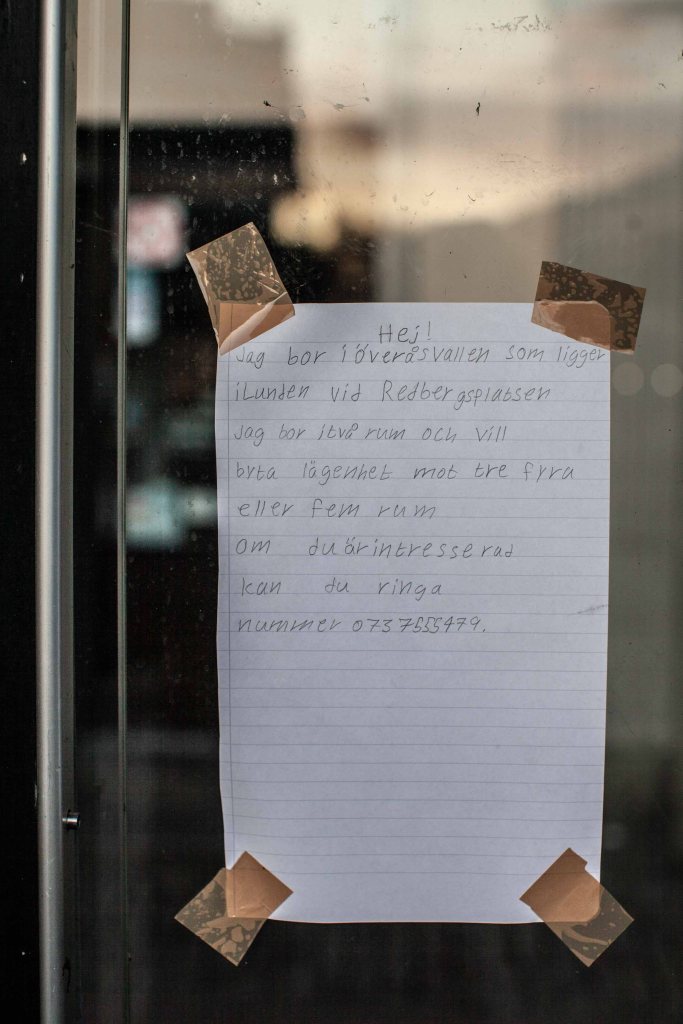 Hej!
Jag bor i överåsvallen som ligger
iLunden vid Redbergsplatsen
Jag bor itvå rum och vill
byta lägenhet mot tre fyra
eller fem rum
om du är intresserad
kan du ringa
nummer 0737555479.